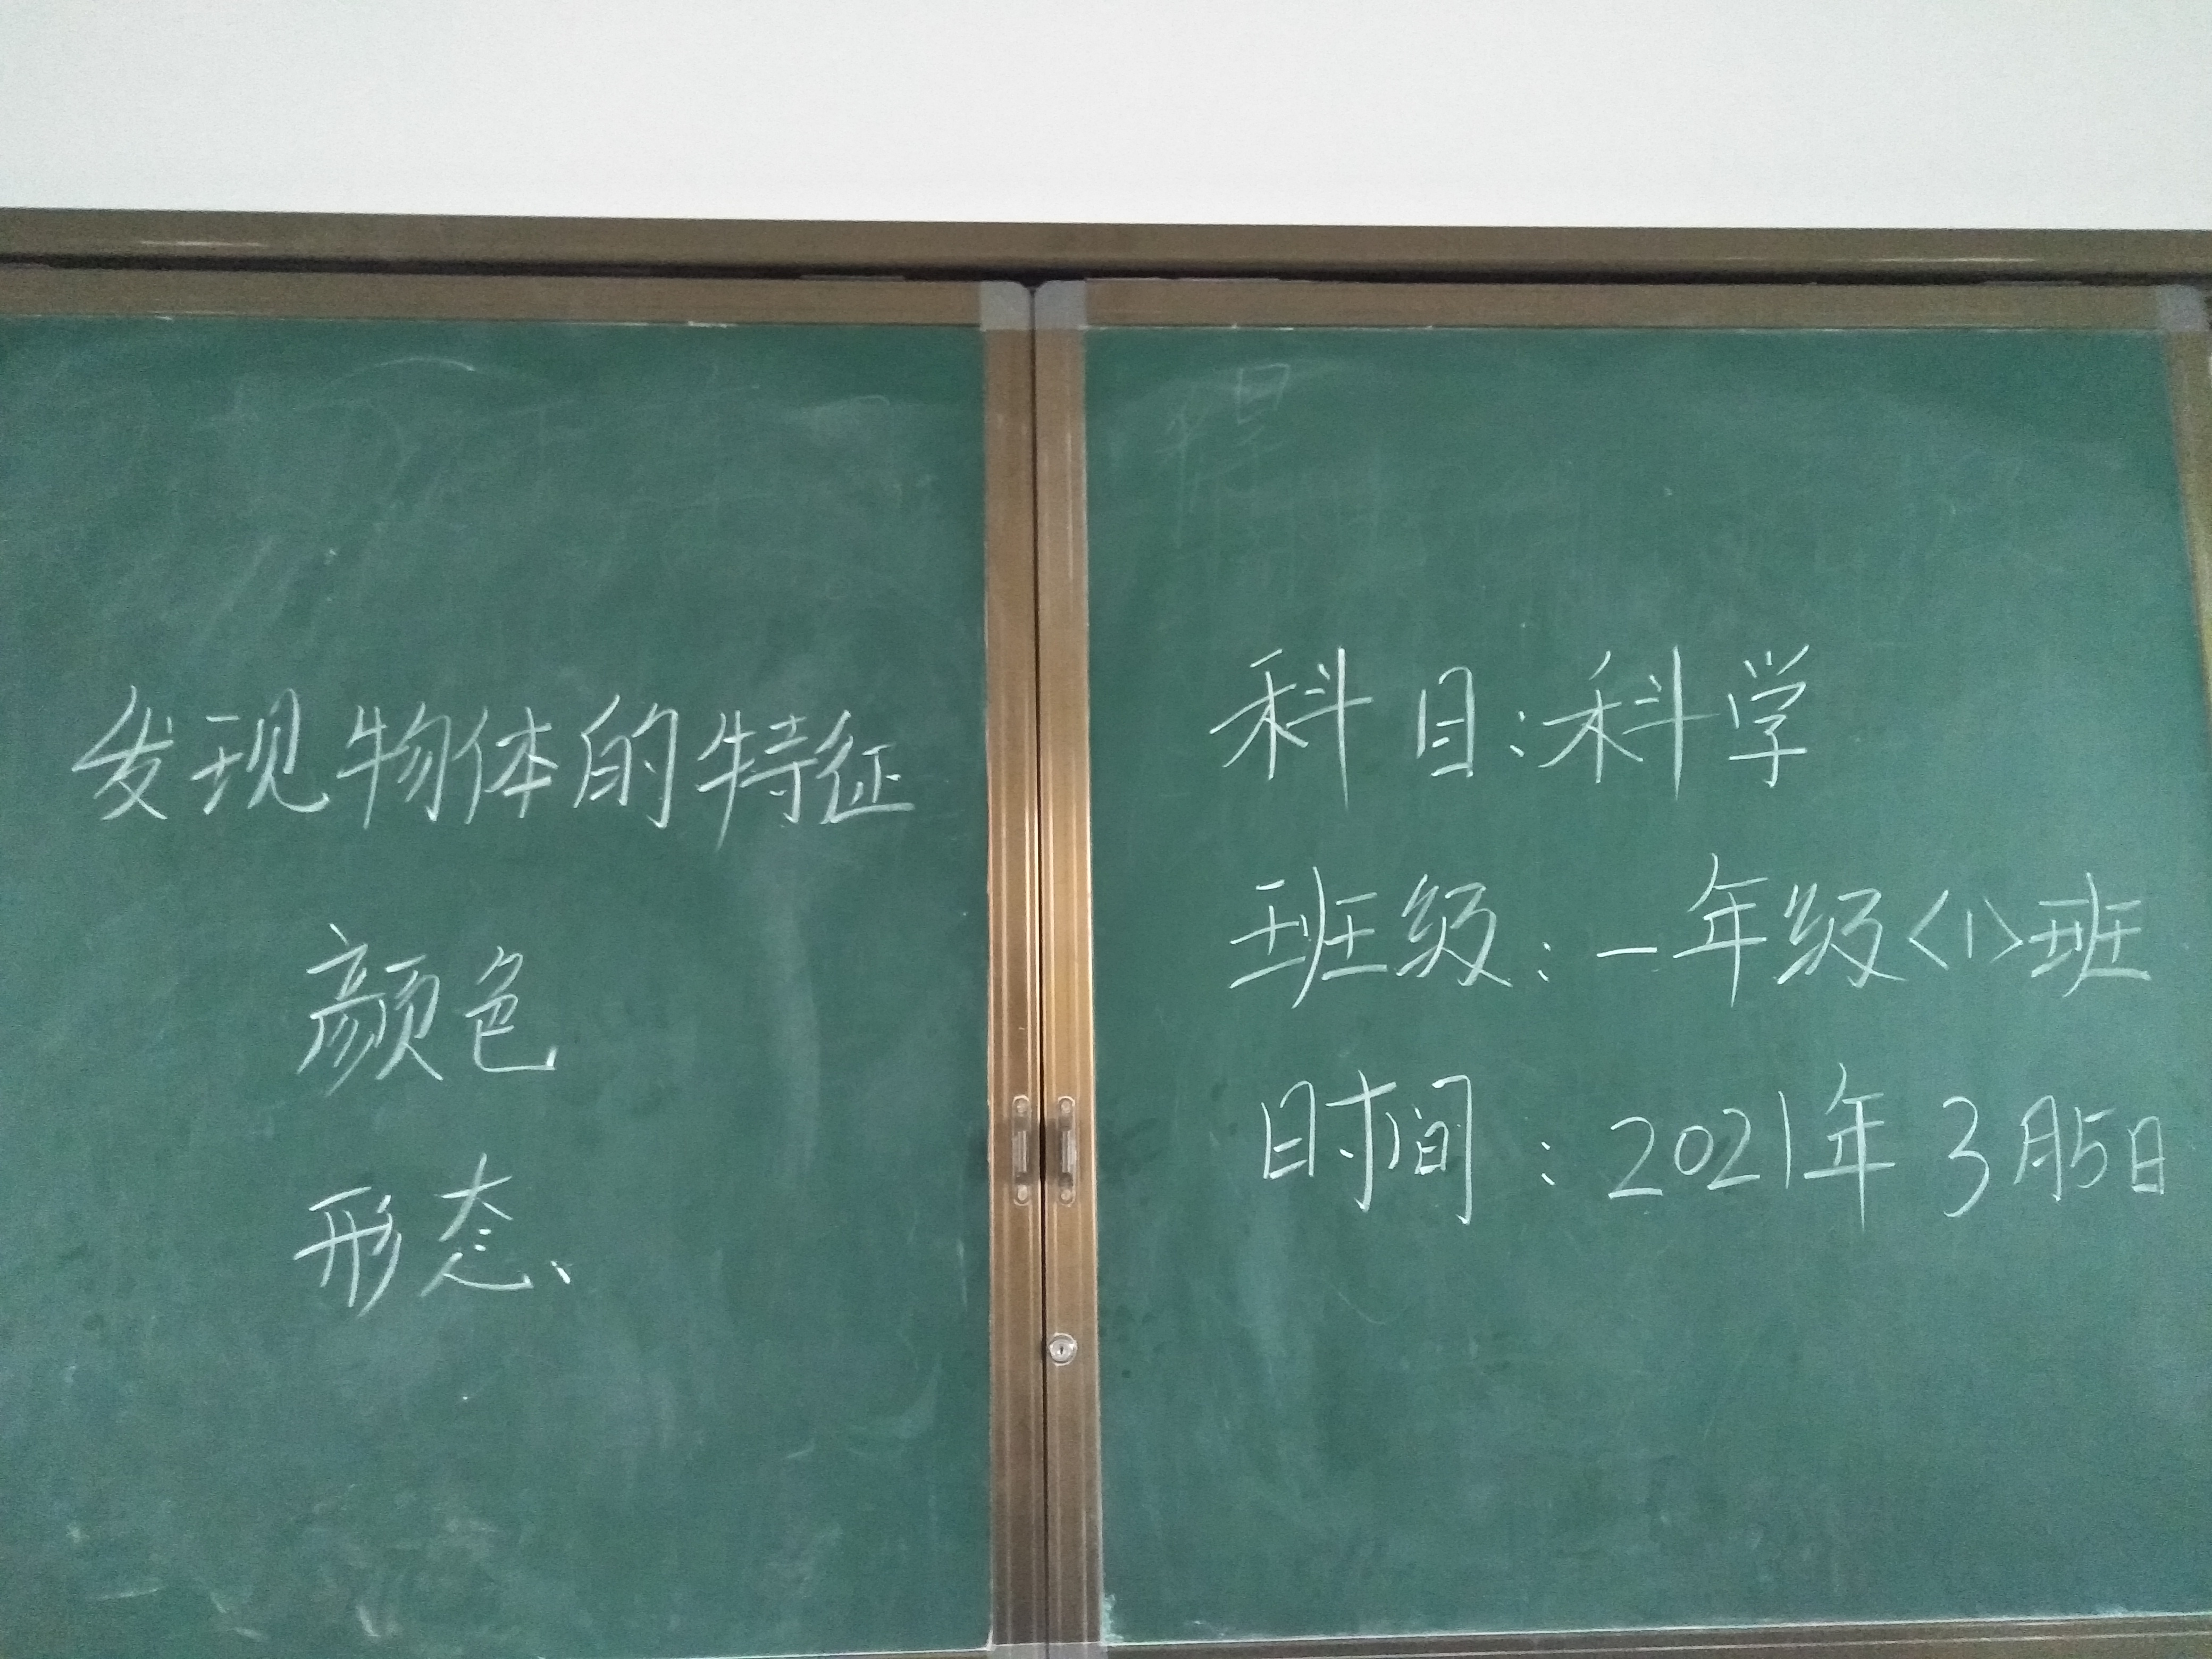 发现物体的特征
颜色
形态、
科目:科学
班级:一年级<1>班
时间:2021年3月5日